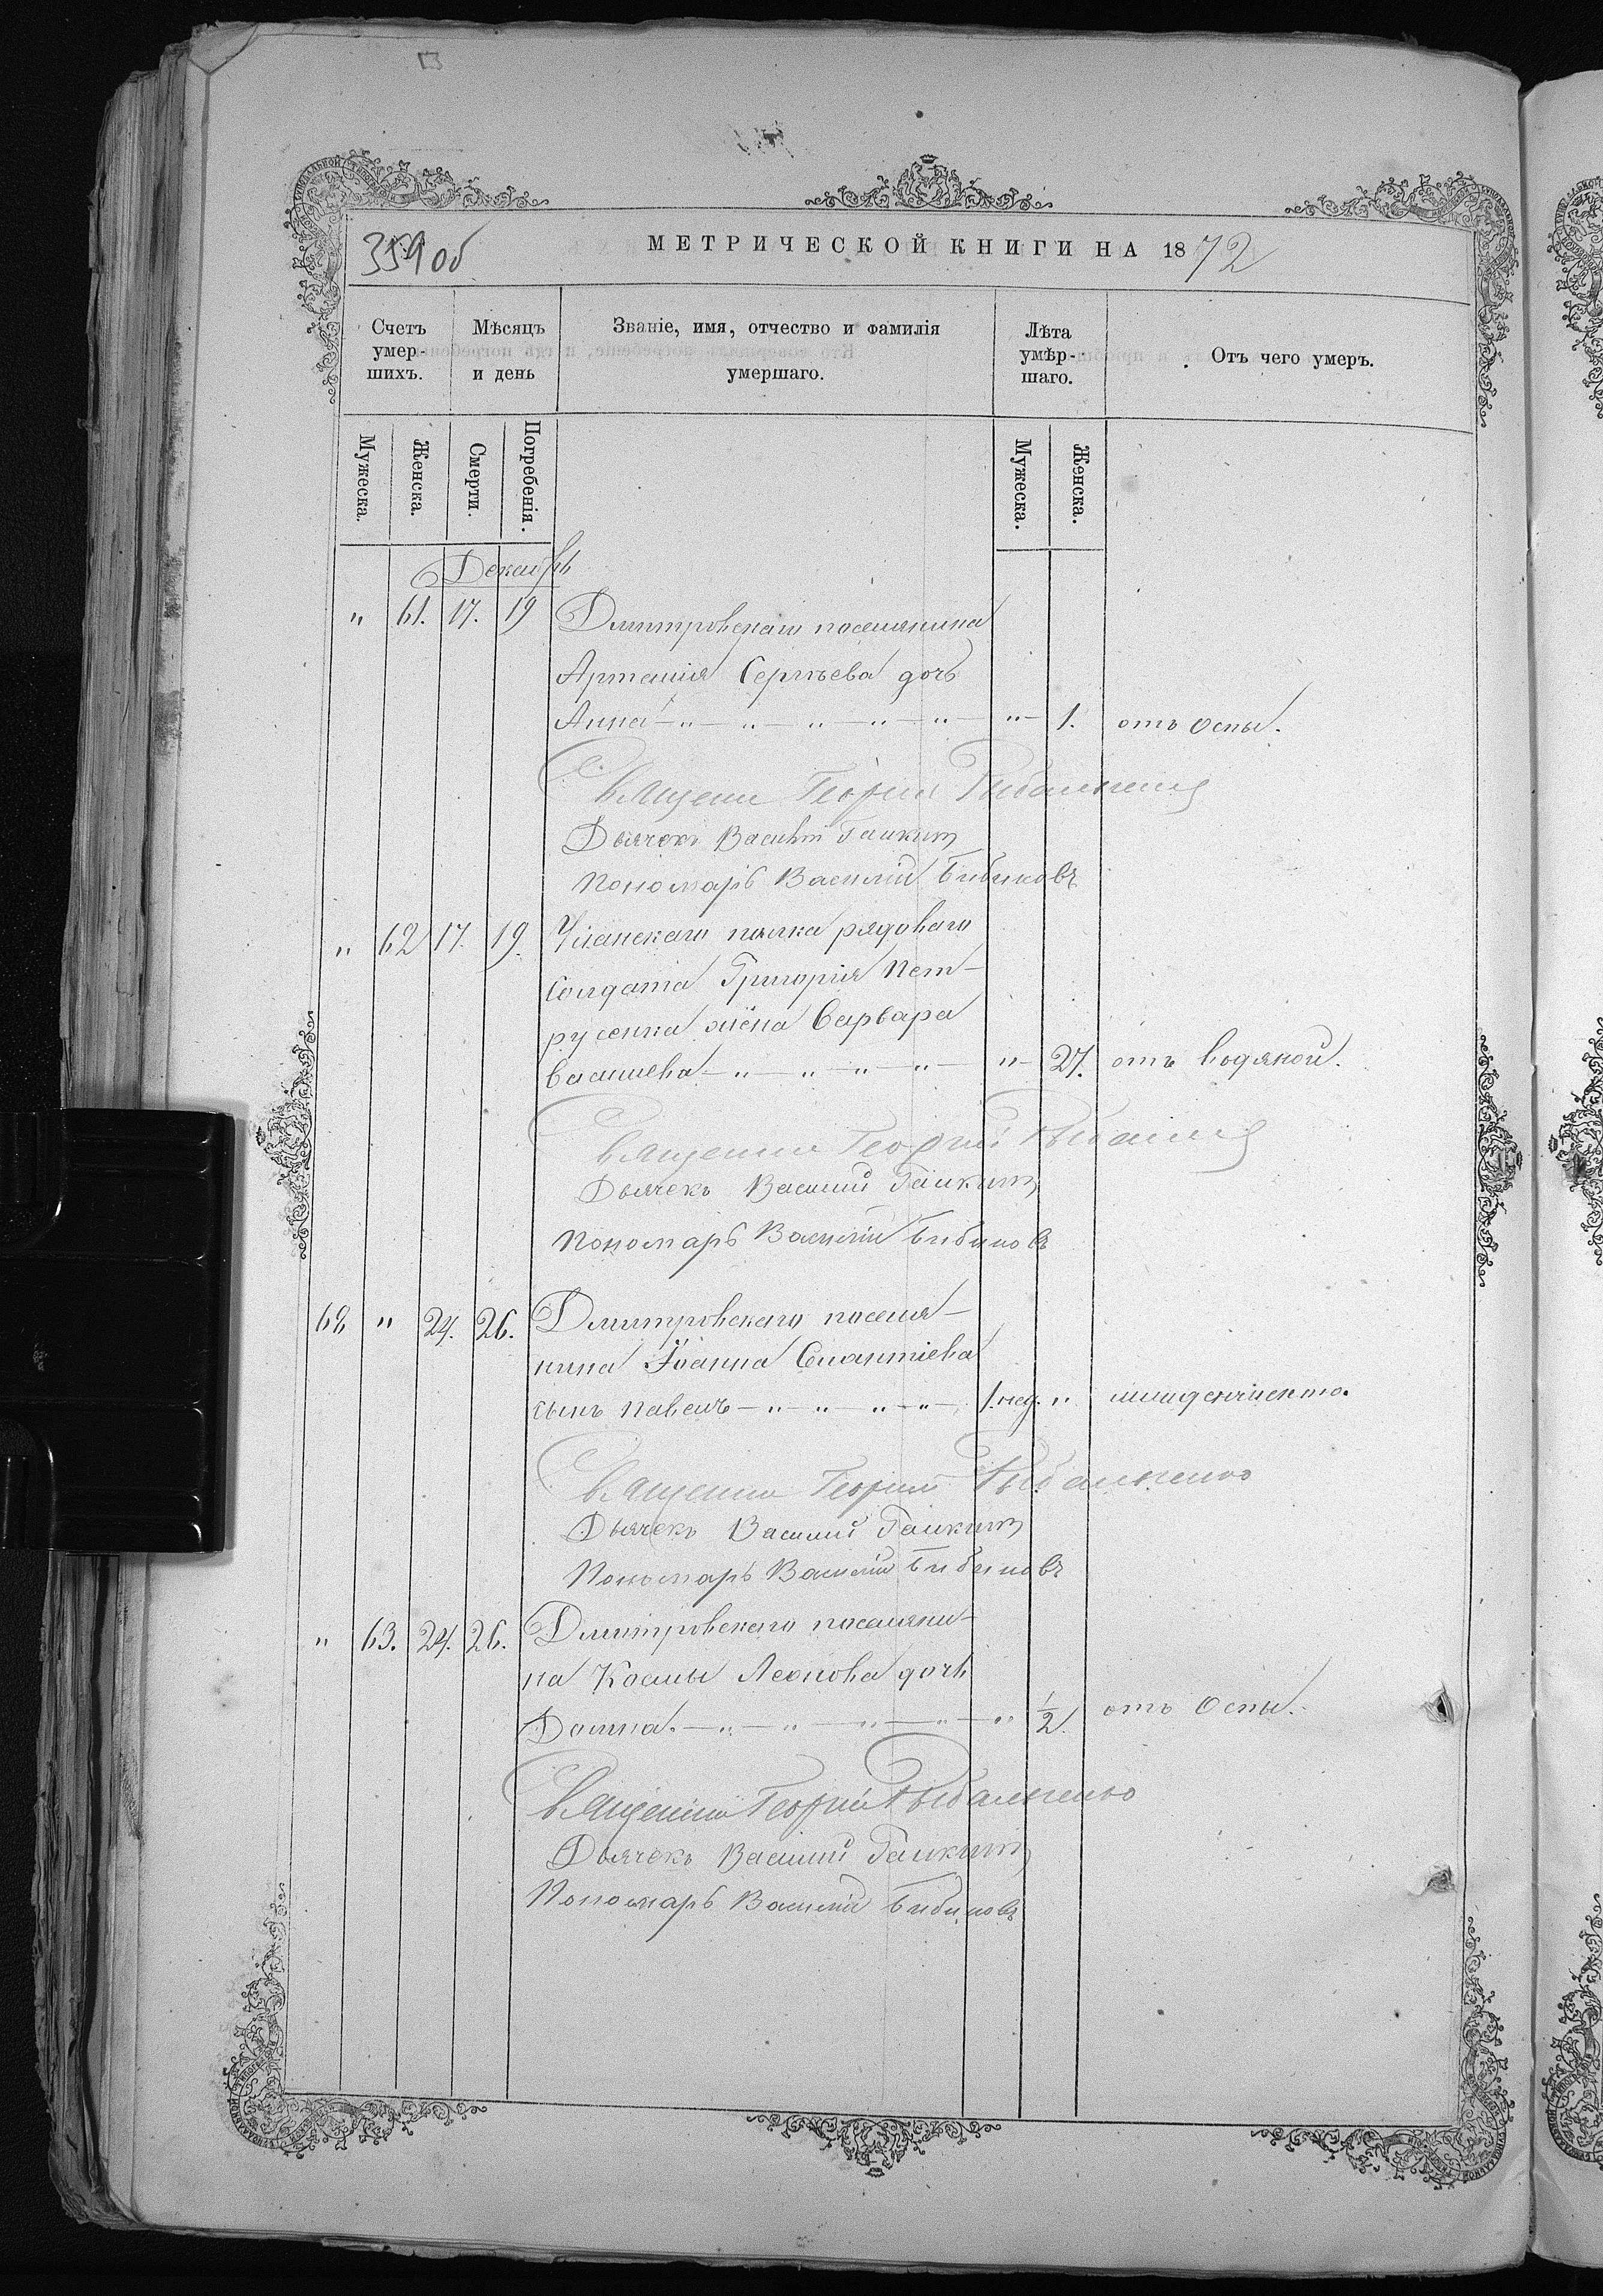 359 об
МЕТРИЧЕСКОЙ КНИГИ НА 1872
Счетъ умер-шихъ.
Мѣсяцъ и день
Званіе, имя, отчество и фамилія умершаго.
Лѣта умѣр-шаго.
Отъ чего умеръ.
Мужеска. Женска. Смерти. Погребенія. Мужеска. Женска.
Декабрь
" 61. 17. 19 Дмитровскаго поселянина
Артемія Сергѣева дочь
Анна — " — " — " — " — " — " — 1. отъ оспы.
Священни Георгій
Дьячекъ Василій Галкинъ
Пономарь Василій Бибиковъ
" 62 17. 19. Уланскаго полка рядоваго
Солдата Григорія Пет-
русенка жена Варвара
Василіева — " — " — " — " — " — 27. отъ водяной.
Священни Георгій
Дьячекъ Василій Галкинъ
Пономарь Василій Бибиковъ
62 " 24. 26. Дмитровскаго поселя-
нина Іоанна
сынъ Павелъ — " — " — " — " — 1. нед. "
Священни Георгій Рыбалченко
Дьячекъ Василій Галкинъ
Пономарь Василій Бибиковъ
" 63. 24. 26. Дмитровскаго поселяни-
на Космы Леонова дочь
Домна. — " — " — " — " — " 1/2. отъ Оспы.
Священни Георгій Рыбалченко
Дьячекъ Василій Галкинъ
Пономарь Василій Бибиковъ